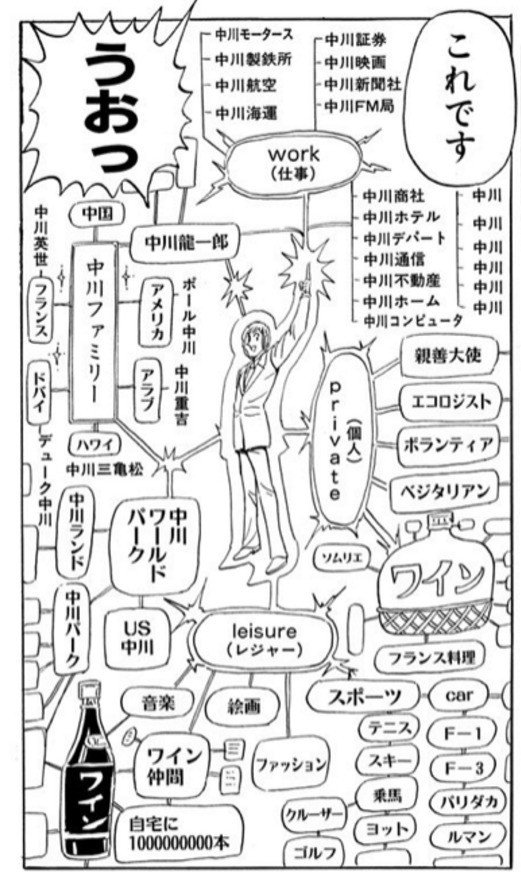 これです
うおっ
中川モータース
中川製鉄所
中川航空
中川海運
中川証券
中川映画
中川新聞社
中川FM局
work
(仕事)
中川商社
中川ホテル
中川デパート
中川通信
中川不動産
中川ホーム
中川コンピュータ
中川
中川
中川
中川
中川
中川
中川龍一郎
中国
中川ファミリー
中川英世
フランス
アメリカ
ポール中川
ドバイ
アラブ
中川重吉
デューク中川
ハワイ
中川三亀松
private
(個人)
親善大使
エコロジスト
ボランティア
ベジタリアン
ソムリエ
ワイン
フランス料理
中川
ワールド
パーク
中川ランド
中川パーク
US
中川
leisure
(レジャー)
音楽
絵画
ファッション
ワイン
仲間
自宅に
1000000000本
ワイン
スポーツ
テニス
スキー
乗馬
ヨット
クルーザー
ゴルフ
car
F-1
F-3
パリダカ
ルマン